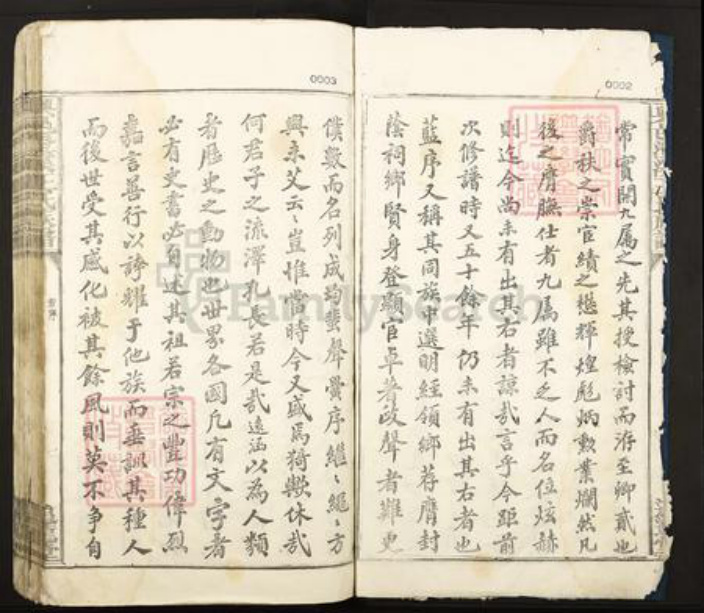 0002
常實開九屬之先其授檢討而洊至卿貳也
爵秩之崇宦績之懋輝煌彪炳勳業爛然凡
後之膺膴仕者九屬雖不乏人而名位炫赫
則迄今尚未有出其右者諒哉言乎今距前
次修譜時又五十餘年仍未有出其右者也
藍序又稱其同族中選明經領鄉荐膺封
蔭祠鄉賢身登顯官卓著政聲者難更
0003
僕數而名列成均蜚聲黌序繼繼繩繩方
興未艾云云豈惟當時今又盛焉猗歟休哉
何君子之流澤孔長若是哉遠涵以為人類
者歷史之動物也世界各國凡有文字者
必有史書必自述其祖若宗之豐功偉烈
嘉言善行以誇耀于他族而垂訓其種人
而後世受其感化被其餘風則莫不爭自
FamilySearch